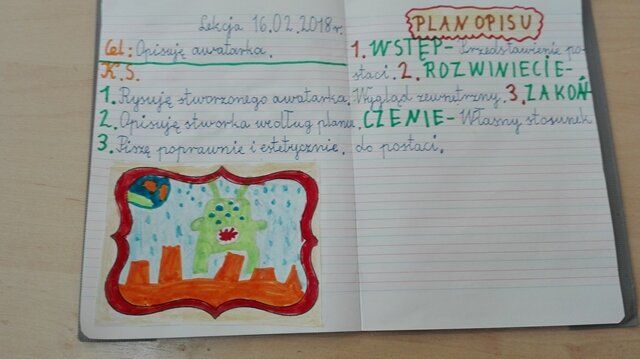 Lekcja 16.02.2018r.
Cel: Opisuję awatarka.
K.S.
1. Rysuję stworzonego awatarka.
2. Opisuję stworka według planu.
3. Piszę poprawnie i estetycznie.
PLAN OPISU
1. WSTĘP - Przedstawienie po-
staci. 2. ROZWINIECIE-
Wygląd zewnętrzny. 3. ZAKOŃ-
CZENIE - Własny stosunek
do postaci.